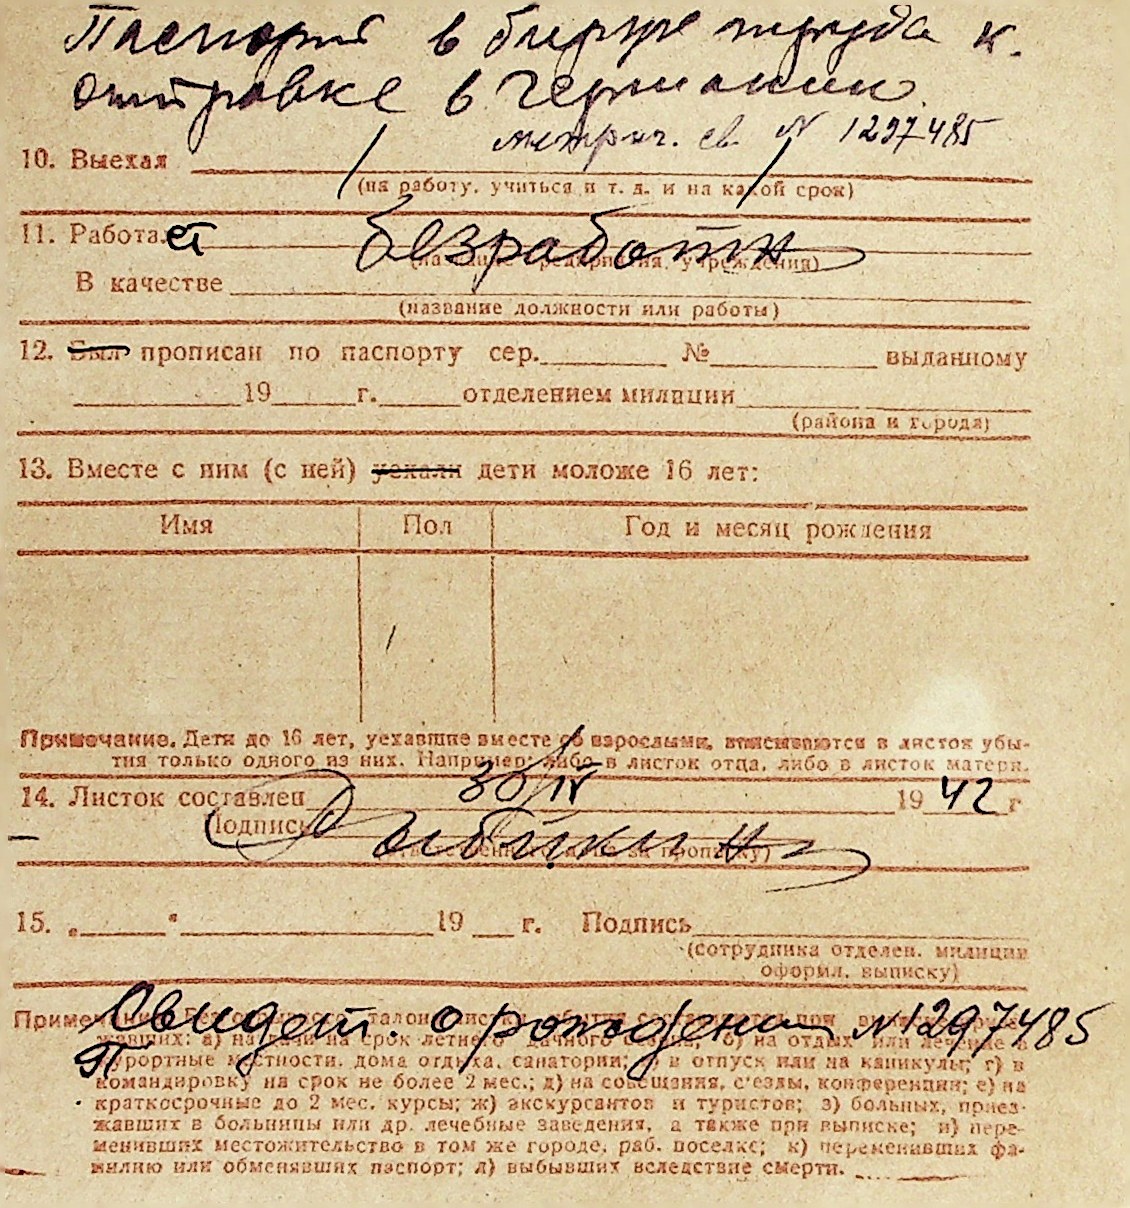 Паспорт в бирже труда к
отправке в Германию
метрич. св. № 1297485
10. Выехал
(на работу, учиться и т. д. и на какой срок)
11. Работает безработн
(название предприятия, учреждения)
В качестве
(название должности или работы)
12. Был прописан по паспорту сер. № выданному
19 г. отделением милиции
(района и города)
13. Вместе с ним (с ней) уехали дети моложе 16 лет:
Имя Пол Год и месяц рождения
Примечание. Дети до 16 лет, уехавшие вместе со взрослыми, вписываются в листок убы-
тия только одного из них. Например: либо в листок отца, либо в листок матери.
14. Листок составлен 30/IV 1942 г
Подпись
(ответственного за прописку)
15. „ “ 19 г. Подпись
(сотрудника отделен. милиции
оформл. выписку)
Свидет. о рождении № 1297485
Примечание. талон листка при
жавших: а) на дачи на срок летнего дачного сезона; б) на отдых или лечение в
курортные местности, дома отдыха, санатории; в) в отпуск или на каникулы; г) в
командировку на срок не более 2 мес.; д) на совещания, с'езды, конференции; е) на
краткосрочные до 2 мес. курсы; ж) экскурсантов и туристов; з) больных, приез-
жавших в больницы или др. лечебные заведения, а также при выписке; и) пере-
менивших местожительство в том же городе, раб. поселке; к) переменивших фа-
милию или обменявших паспорт; л) выбывших вследствие смерти.